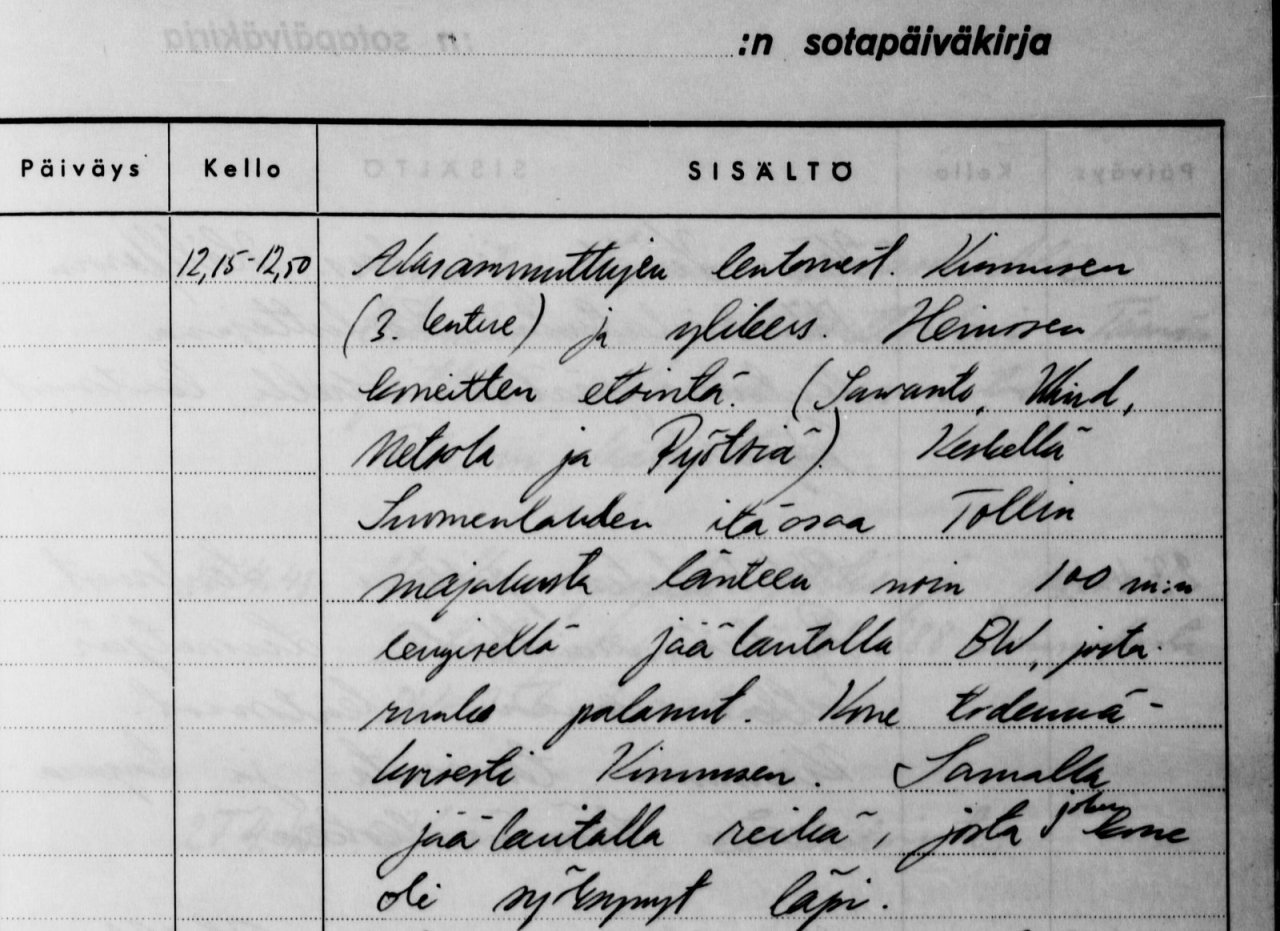 :n sotapäiväkirja
Päiväys Kello SISÄLTÖ
12,15-12,50 Alasammuttujen lentomest. Kinnusen
(3. lentue) ja ylikers. Heinosen
koneitten etsintä. (Sarvanto, Wind,
Metsola ja Pyötsiä). Keskellä
Suomenlahden itäosaa Tollin
majakasta länteen noin 100 m:n
levyisellä jäälautalla BW, josta
runko palanut. Kone todennä-
köisesti Kinnusen. Samalla
jäälautalla reikä, josta joku kone
oli syöksynyt läpi.